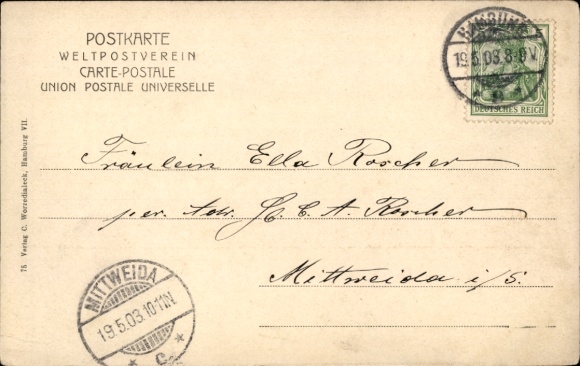 POSTKARTE
WELTPOSTVEREIN
CARTE-POSTALE
UNION POSTALE UNIVERSELLE
HAMBURG
19.5.03.8-9V.
DEUTSCHES REICH
Fräulein Ella Roscher
per. Adr. H. C. A. Roscher
Mittweida i/S.
MITTWEIDA
19.5.03.10-11N.
75 Verlag C. Worzedialeck, Hamburg VII.